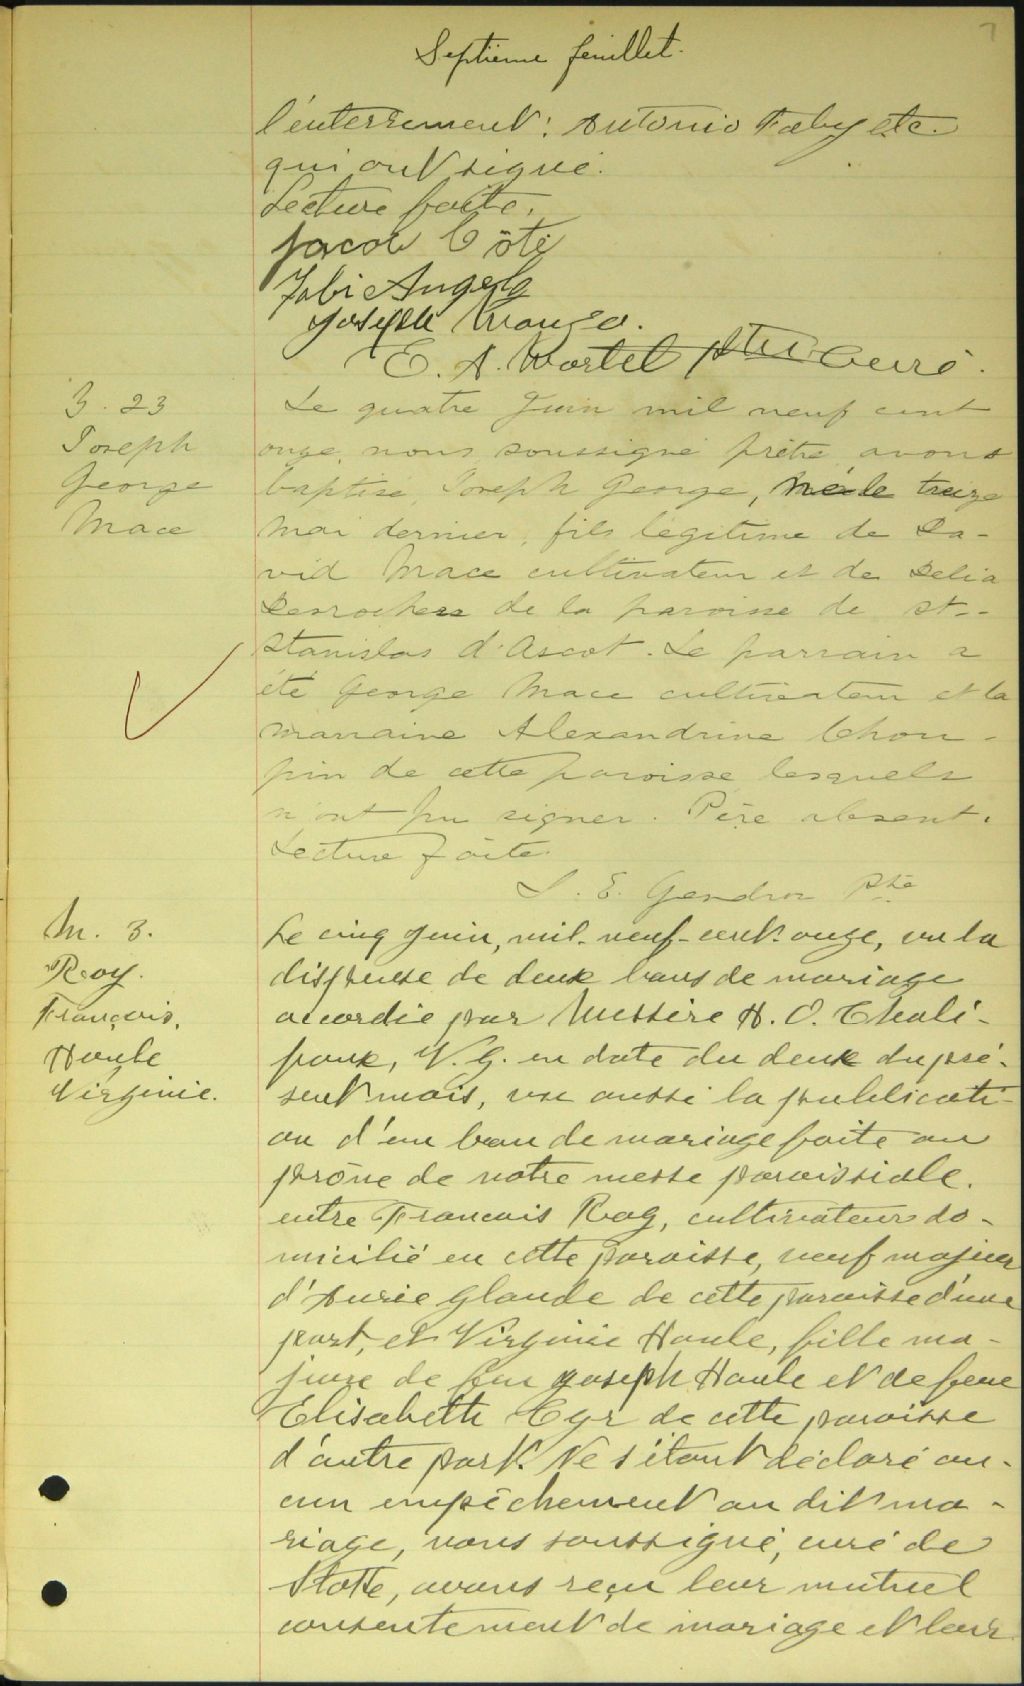 7
Septième feuillet.
l'enterrement: Antonio Faby etc.
qui ont signé.
Lecture faite.
Jacob Côté
Fabi Angelo
Joseph
E. A. Wortel Ptre Curé.
B. 23
Joseph
George
Mace
Le quatre Juin mil neuf cent
onze, nous soussigné prêtre avons
baptisé Joseph George, né le treize
Mai dernier, fils légitime de Da-
vid Mace cultivateur et de Delia
Desrochers de la paroisse de St-
Stanislas d'Ascot. Le parrain a
été George Mace cultivateur et la
marraine Alexandrine Chou-
pin de cette paroisse lesquels
n'ont pu signer. Père absent.
Lecture faite.
E. Gendron Ptre
M. 3.
Roy.
François.
Houle
Virginie.
Le cinq Juin, mil-neuf-cent-onze, vu la
dispense de deux bans de mariage
accordée par Messire H. O. Chali-
foux, V.G. en date du deux du pré-
sent mois, vu aussi la publicati-
on d'un ban de mariage faite au
prône de notre messe paroissiale.
entre Francois Roy, cultivateur do-
micilié en cette paroisse, veuf majeur
d'Aurie Glaude de cette paroisse d'une
part, et Virginie Houle, fille ma-
jeure de feu Joseph Houle et de feue
Elisabeth Cyr de cette paroisse
d'autre part. Ne s'étant déclaré au-
cun empêchement au dit ma-
riage, nous soussigné, curé de
Stoke, avons reçu leur mutuel
consentement de mariage et leur